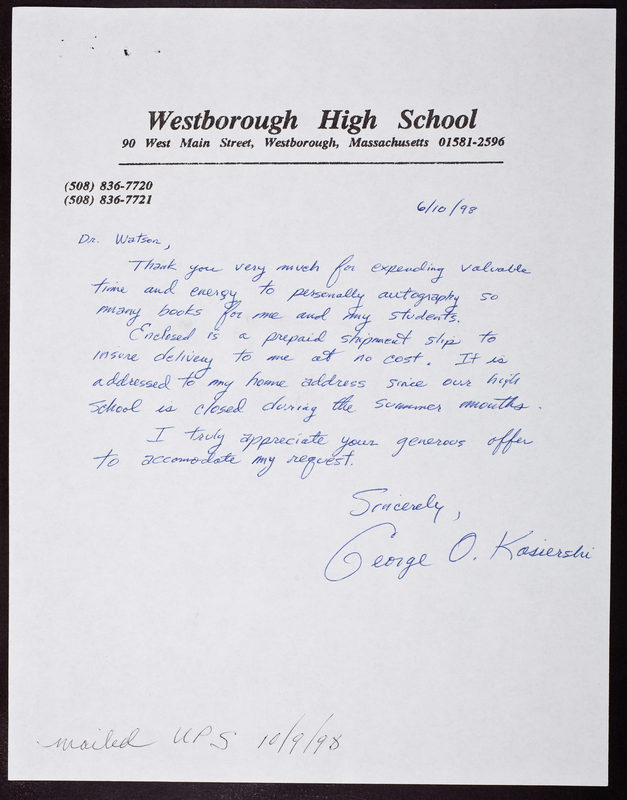 Westborough High School
90 West Main Street, Westborough, Massachusetts 01581-2596
(508) 836-7720
(508) 836-7721
6/10/98
Dr. Watson,
Thank you very much for expending valuable
time and energy to personally autography so
many books for me and my students.
Enclosed is a prepaid shipment slip to
insure delivery to me at no cost. It is
addressed to my home address since our high
school is closed during the summer months.
I truly appreciate your generous offer
to accomodate my request.
Sincerely,
George O. Kosierski
mailed UPS 10/9/98